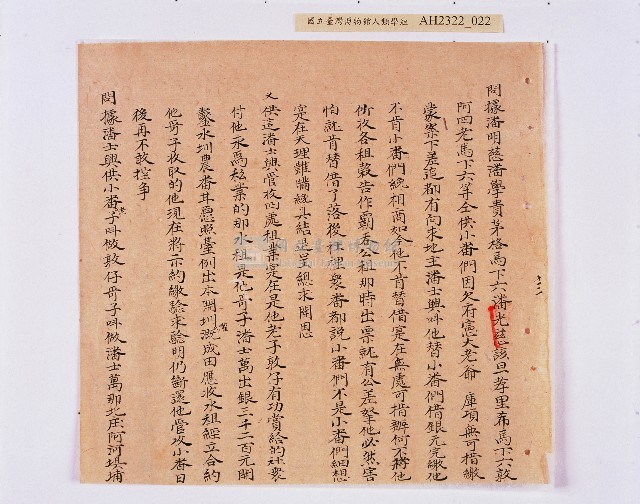 國立臺灣博物館人類學組 AH2322_022
問據潘明慈潘學貴茅格馬下六潘光該旦孝里希馬下六敦
阿四老馬下六等仝供小番們因欠府憲大老爺 庫項無可措繳
蒙票下差追都有向來地主潘士興叫他替小番們借銀元完繳他
不肯小番們纔相商如今他不肯替借寔在無處可措辦何不將他
所收各租穀告作霸吞公租那時出票就有公差拏他必然害
怕就肯替借了落後社裡眾番都說小番們不是小番們細想
寔在天理難瞞纔具結呈總求開恩
又供這潘士興管收四處租業寔在是他老子敦仔有功賞給的社眾
付他永為核業的那水租是他哥子潘士萬出銀三千二百元開
鑿水圳農番耳愿照臺例出本開圳灌溉成田應收水租經立合約
他哥子收取的他現在將示約繳驗求驗明仍斷還他管收小番日
後再不敢控爭
問據潘士興供小番老子叫做敦仔哥子叫做潘士萬那地庄阿河垻埔